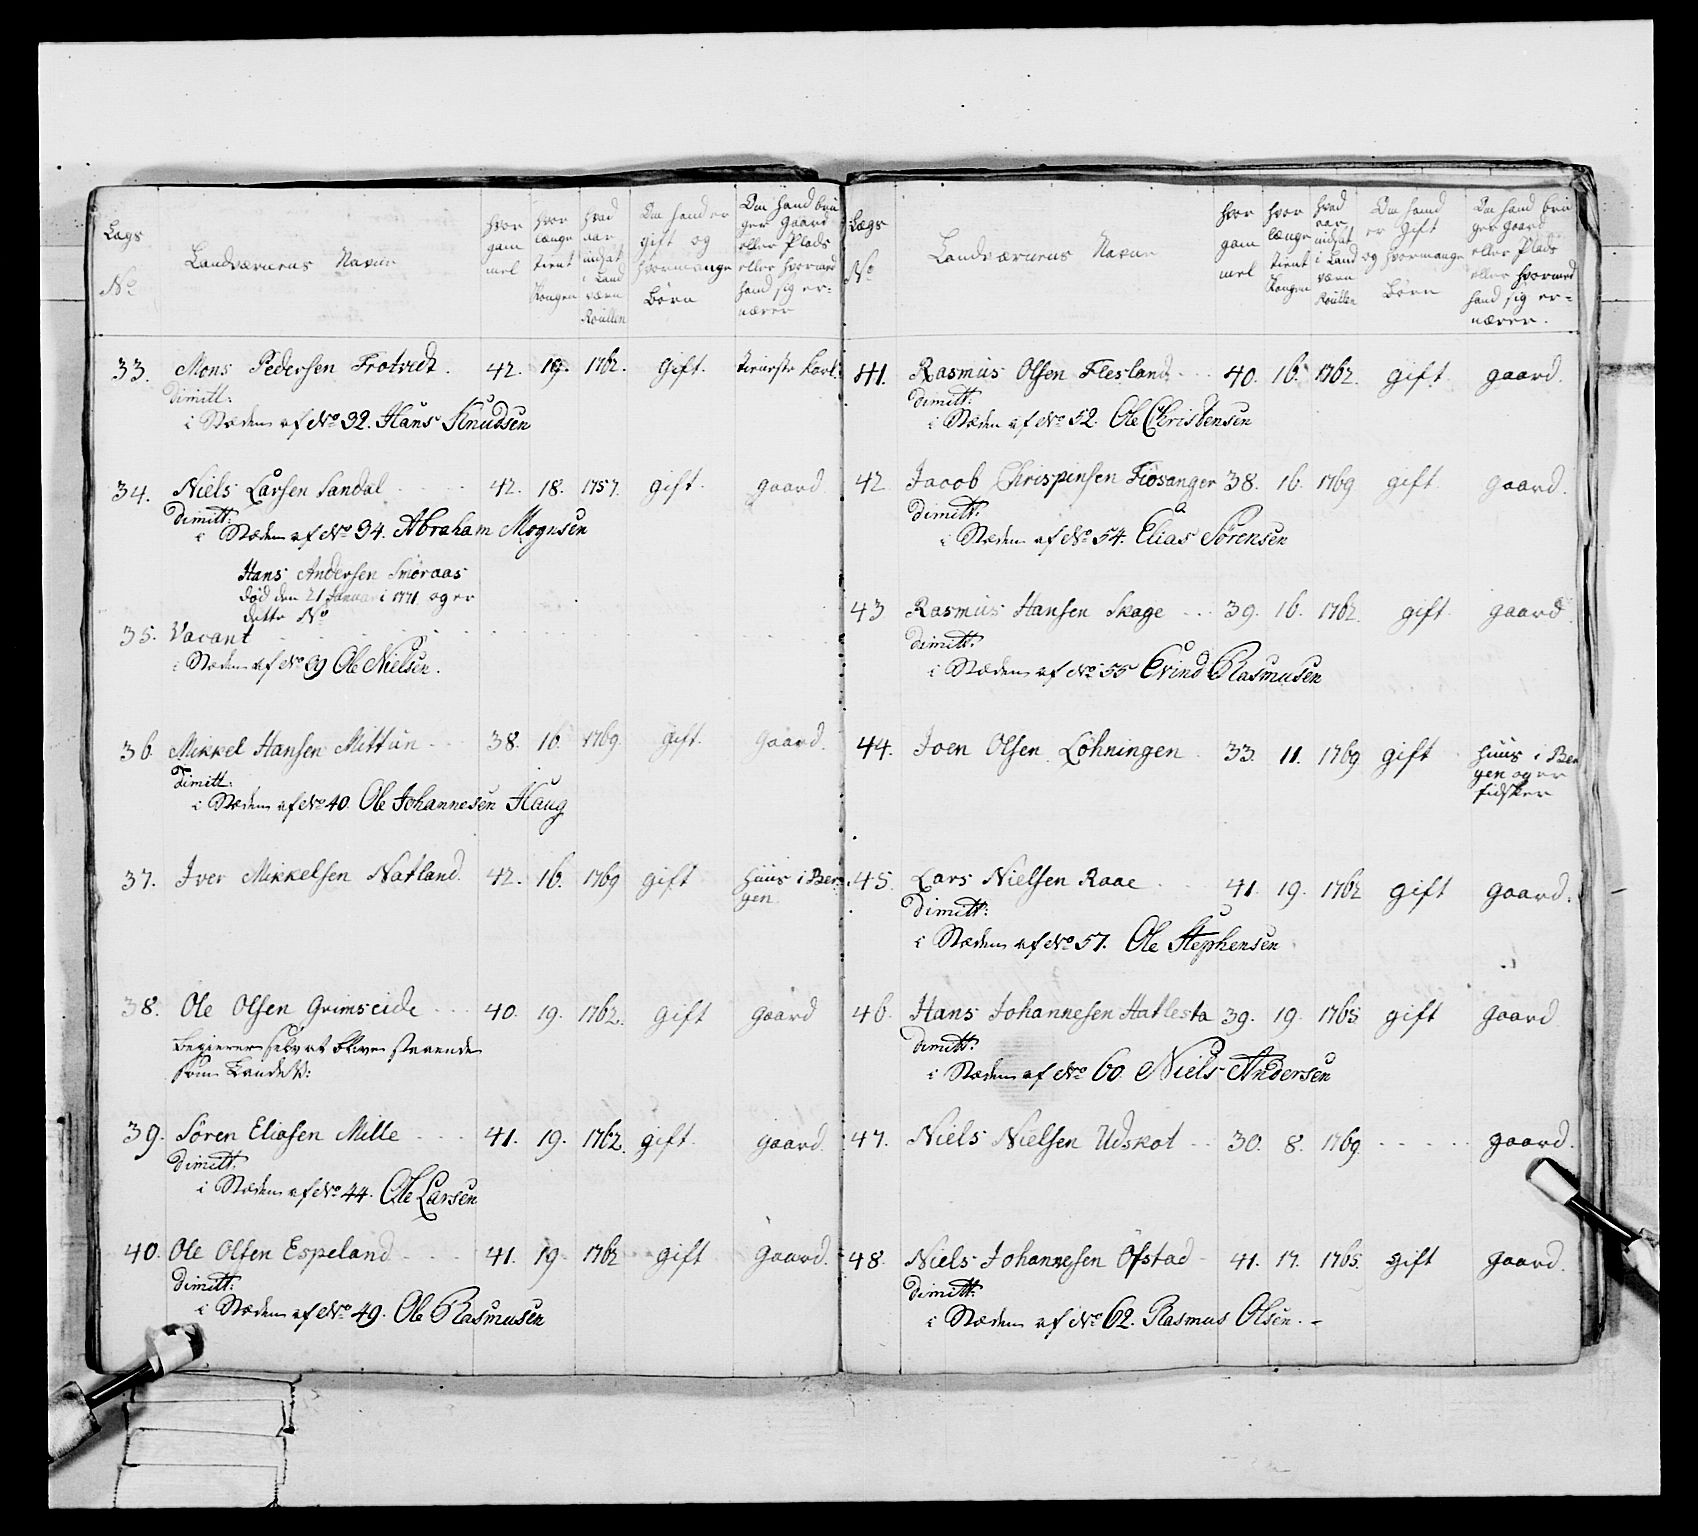 Lægs
No
Landværnens Navne
hvor
gam
mel
hvor
længe
tient
Kongen
hvad
aar
indsat
i Land
værn
Roullen
Om hand er
gift og
hvormange
Børn
Om hand bru
ger Gaard
eller Plads
eller hvormed
hand sig er-
nærer
33. Mons Pedersen Trotvedt. 42. 19. 1762. gift. tieneste Karl.
Dimitt:
i Stæden af No 32. Hans Knudsen
34. Niels Larsen Sandal 42. 18. 1757. gift. gaard
Dimitt:
i Stæden af No 34. Abraham Mognsen
Hans Andersen Smøraas
død den 21 Januari 1771 og er
dette No
35. Vacant
i Stæden af No 39 Ole Nielsen.
36 Mikkel Hansen Mittun 38. 16. 1769. gift. gaard.
Dimitt:
i Stæden af No 40. Ole Johannesen Haug
37. Iver Mikkelsen Natland. 42. 16. 1769 gift huus i Ber
gen
38. Ole Olsen Grimseide 40. 19. 1762. gift gaard
begierer selv at blive staaende
som Landv:
39. Sören Eliasen Mille 41. 19. 1762. gift. gaard.
Dimitt:
i Stæden af No 44. Ole Larsen
40. Ole Olsen Espeland 41. 19. 1762 gift gaard.
Dimitt:
i Stæden af No 49. Ole Rasmusen
Lægs
No
Landværnens Navne
hvor
gam
mel
hvor
længe
tient
Kongen
hvad
aar
indsat
i Land
værn
Roullen
Om hand
er gift
og hvormange
Børn
Om hand bru
ger gaard
eller Plads
eller hvormed
hand sig er-
nærer.
41. Rasmus Olsen Flesland 40. 16. 1762. gift gaard.
Dimitt:
i Stæden af No 52. Ole Christensen
42 Jacob Chrispinsen Fiøsanger 38. 16. 1769 gift gaard.
Dimitt:
i Stæden af No 54. Elias Sørensen
43 Rasmus Hansen Skage 39. 16. 1762. gift gaard.
Dimitt:
i Stæden af No 55 Evind Rasmusen
44. Joen Olsen Löhningen 33. 11. 1769 gift huus i Ber
gen og er
fidsker
45. Lars Nielsen Raae 41. 19. 1762 gift gaard.
Dimitt:
i Stæden af No 57. Ole Stephensen
46. Hans Johannesen Hatlesta 39. 19. 1765 gift gaard
Dimitt:
i Stæden af No 60. Niels Andersen
47. Niels Nielsen Udskot 30. 8. 1769. gaard.
48. Niels Johannesen Öfstad 41. 17. 1765. gift gaard.
Dimitt:
i Stæden af No 62. Rasmus Olsen.